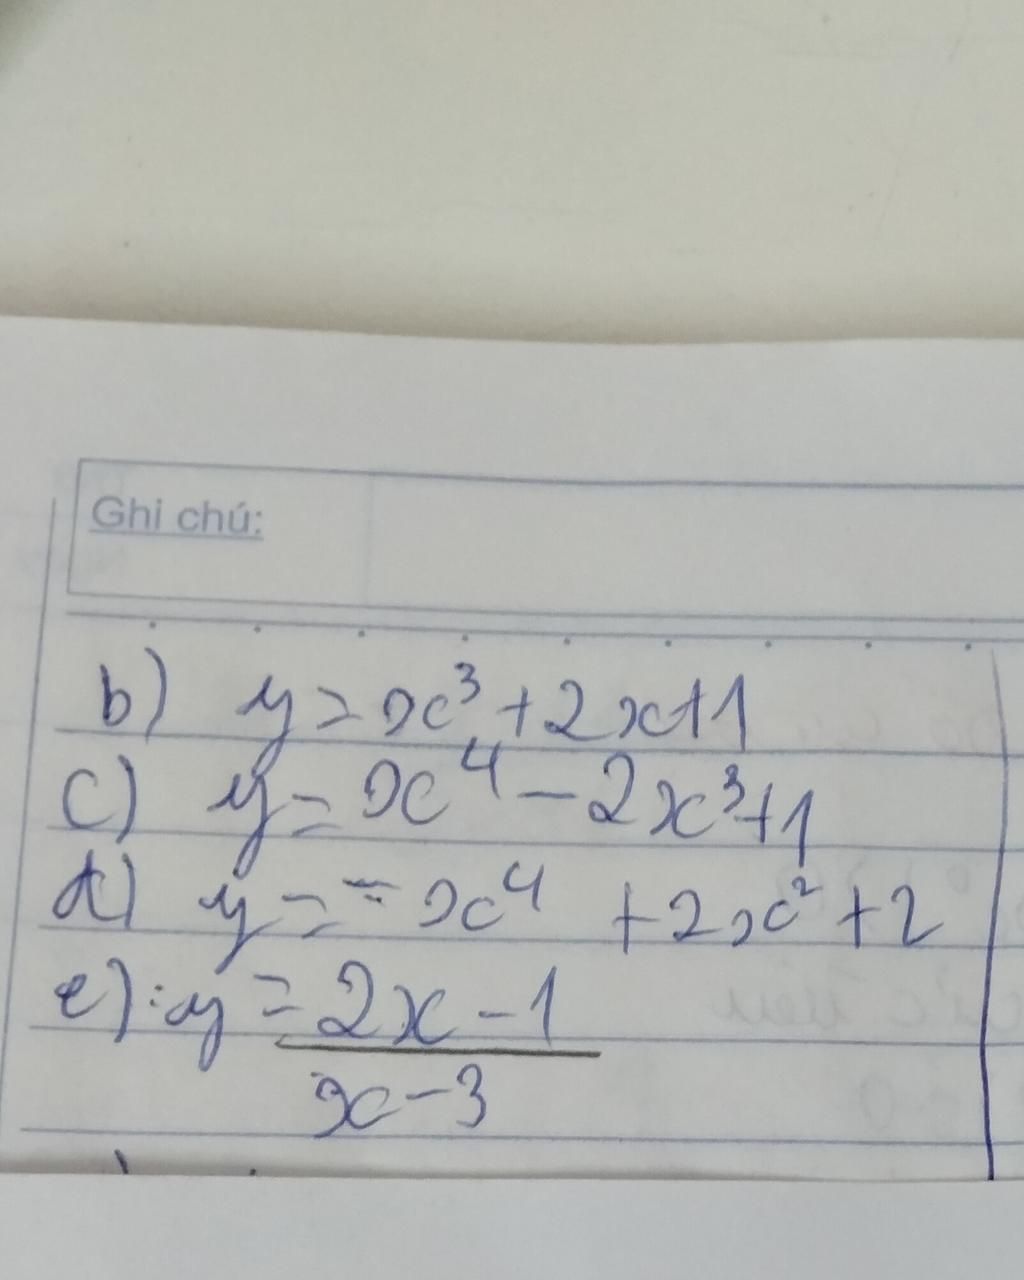 Ghi chú:
b) y = x³ + 2x + 1
c) y = x⁴ - 2x³ + 1
d) y = - x⁴ + 2x² + 2
e) : y = 2x - 1
x - 3